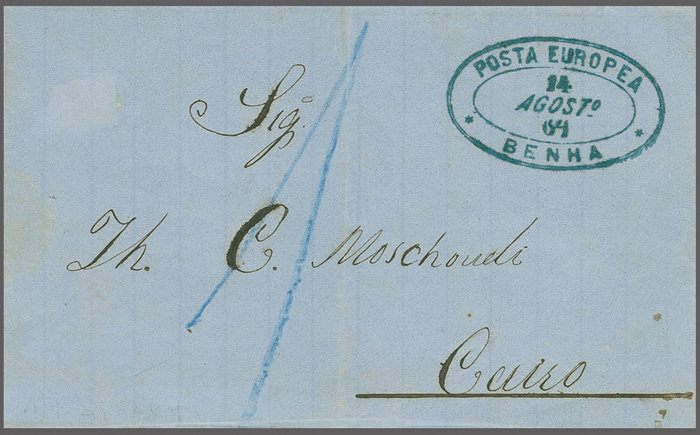 POSTA EUROPEA
14
AGOSTO
64
BENHA
Sig.
Th. C. Moschoudi
Cairo
1